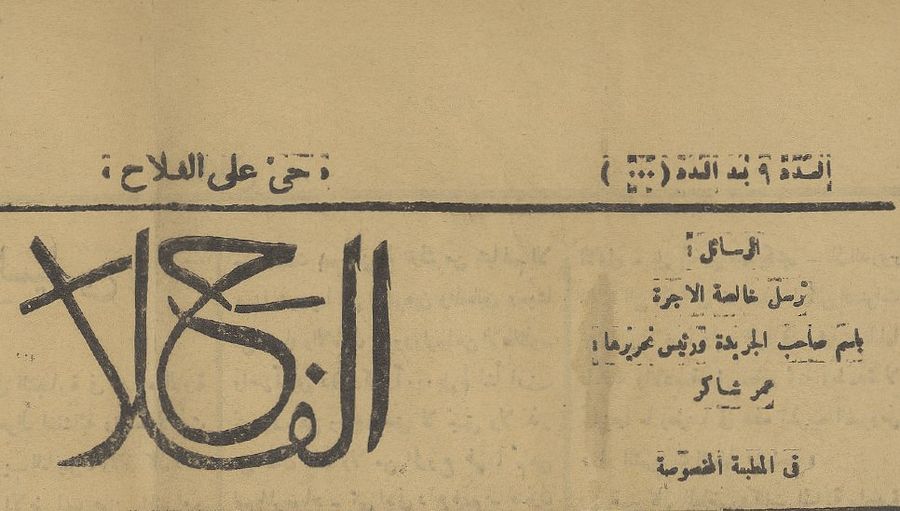 السنة ٩ بند العدد (٠٠٠)
« حيّ على الفلاح »
الفلاح
الرسائل :
ترسل خالصة الاجرة
باسم صاحب الجريدة ورئيس تحريرها :
عمر شاكر
في المطبعة المخصوصة